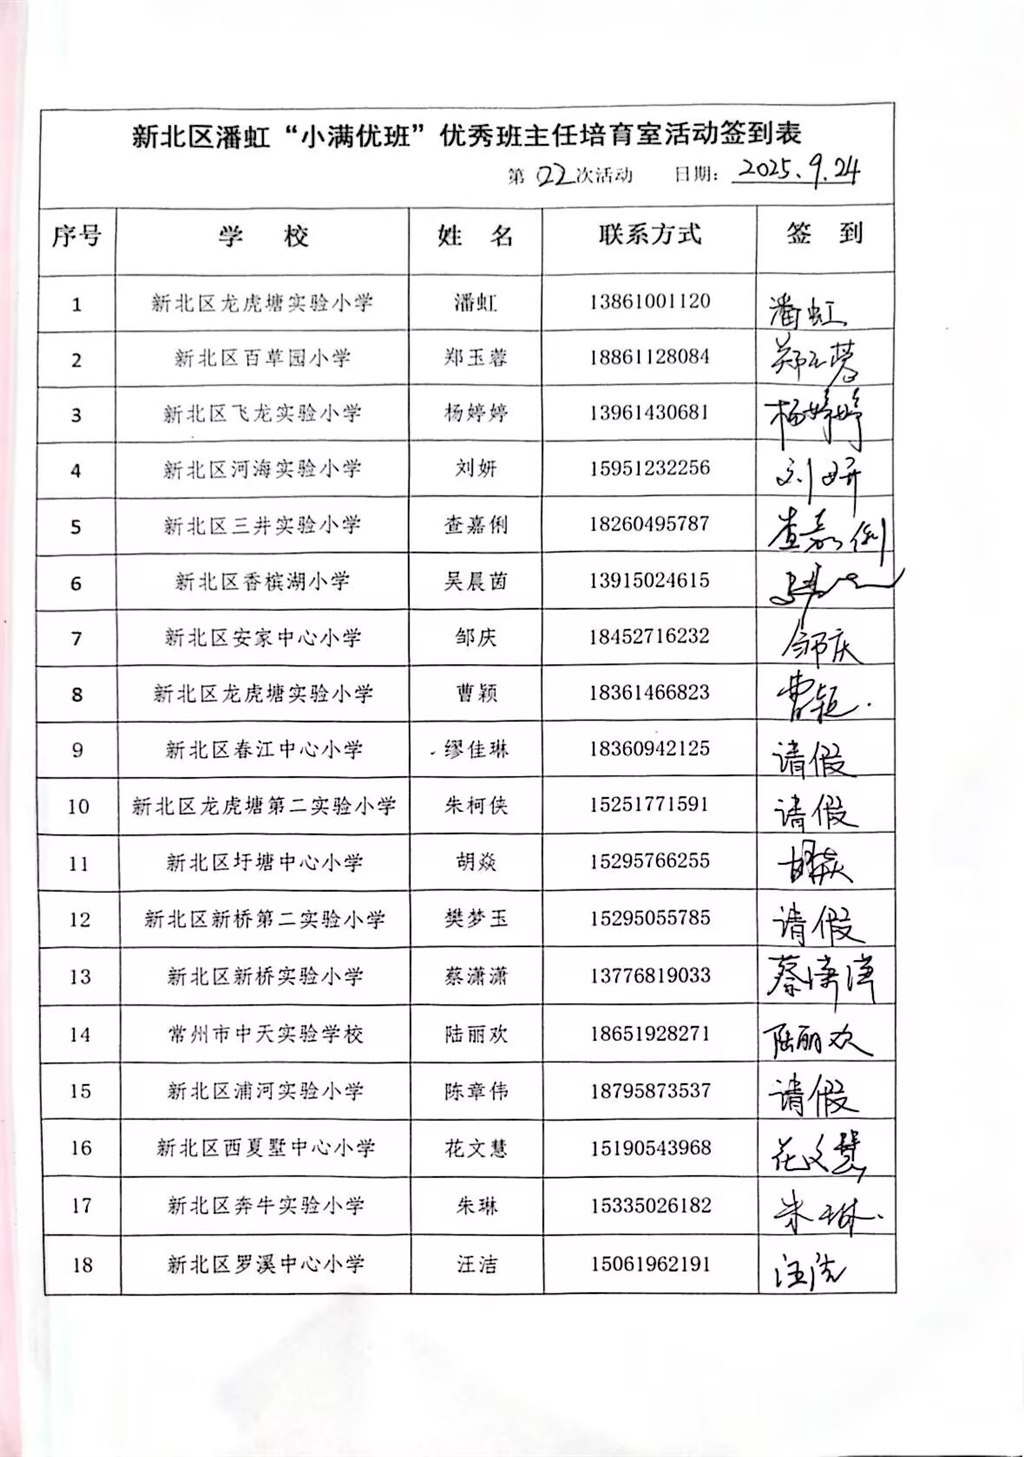 新北区潘虹“小满优班”优秀班主任培育室活动签到表
第022次活动 日期: 2025.9.24
序号 学 校 姓 名 联系方式 签 到
1 新北区龙虎塘实验小学 潘虹 13861001120 潘虹
2 新北区百草园小学 郑玉蓉 18861128084 郑玉蓉
3 新北区飞龙实验小学 杨婷婷 13961430681 杨婷婷
4 新北区河海实验小学 刘妍 15951232256 刘妍
5 新北区三井实验小学 查嘉俐 18260495787 查嘉俐
6 新北区香槟湖小学 吴晨茵 13915024615
7 新北区安家中心小学 邹庆 18452716232 邹庆
8 新北区龙虎塘实验小学 曹颖 18361466823 曹颖.
9 新北区春江中心小学 缪佳琳 18360942125 请假
10 新北区龙虎塘第二实验小学 朱柯侠 15251771591 请假
11 新北区圩塘中心小学 胡焱 15295766255 胡焱
12 新北区新桥第二实验小学 樊梦玉 15295055785 请假
13 新北区新桥实验小学 蔡潇潇 13776819033 蔡潇潇
14 常州市中天实验学校 陆丽欢 18651928271 陆丽欢
15 新北区浦河实验小学 陈章伟 18795873537 请假
16 新北区西夏墅中心小学 花文慧 15190543968 花文慧
17 新北区奔牛实验小学 朱琳 15335026182 朱琳.
18 新北区罗溪中心小学 汪洁 15061962191 汪洁